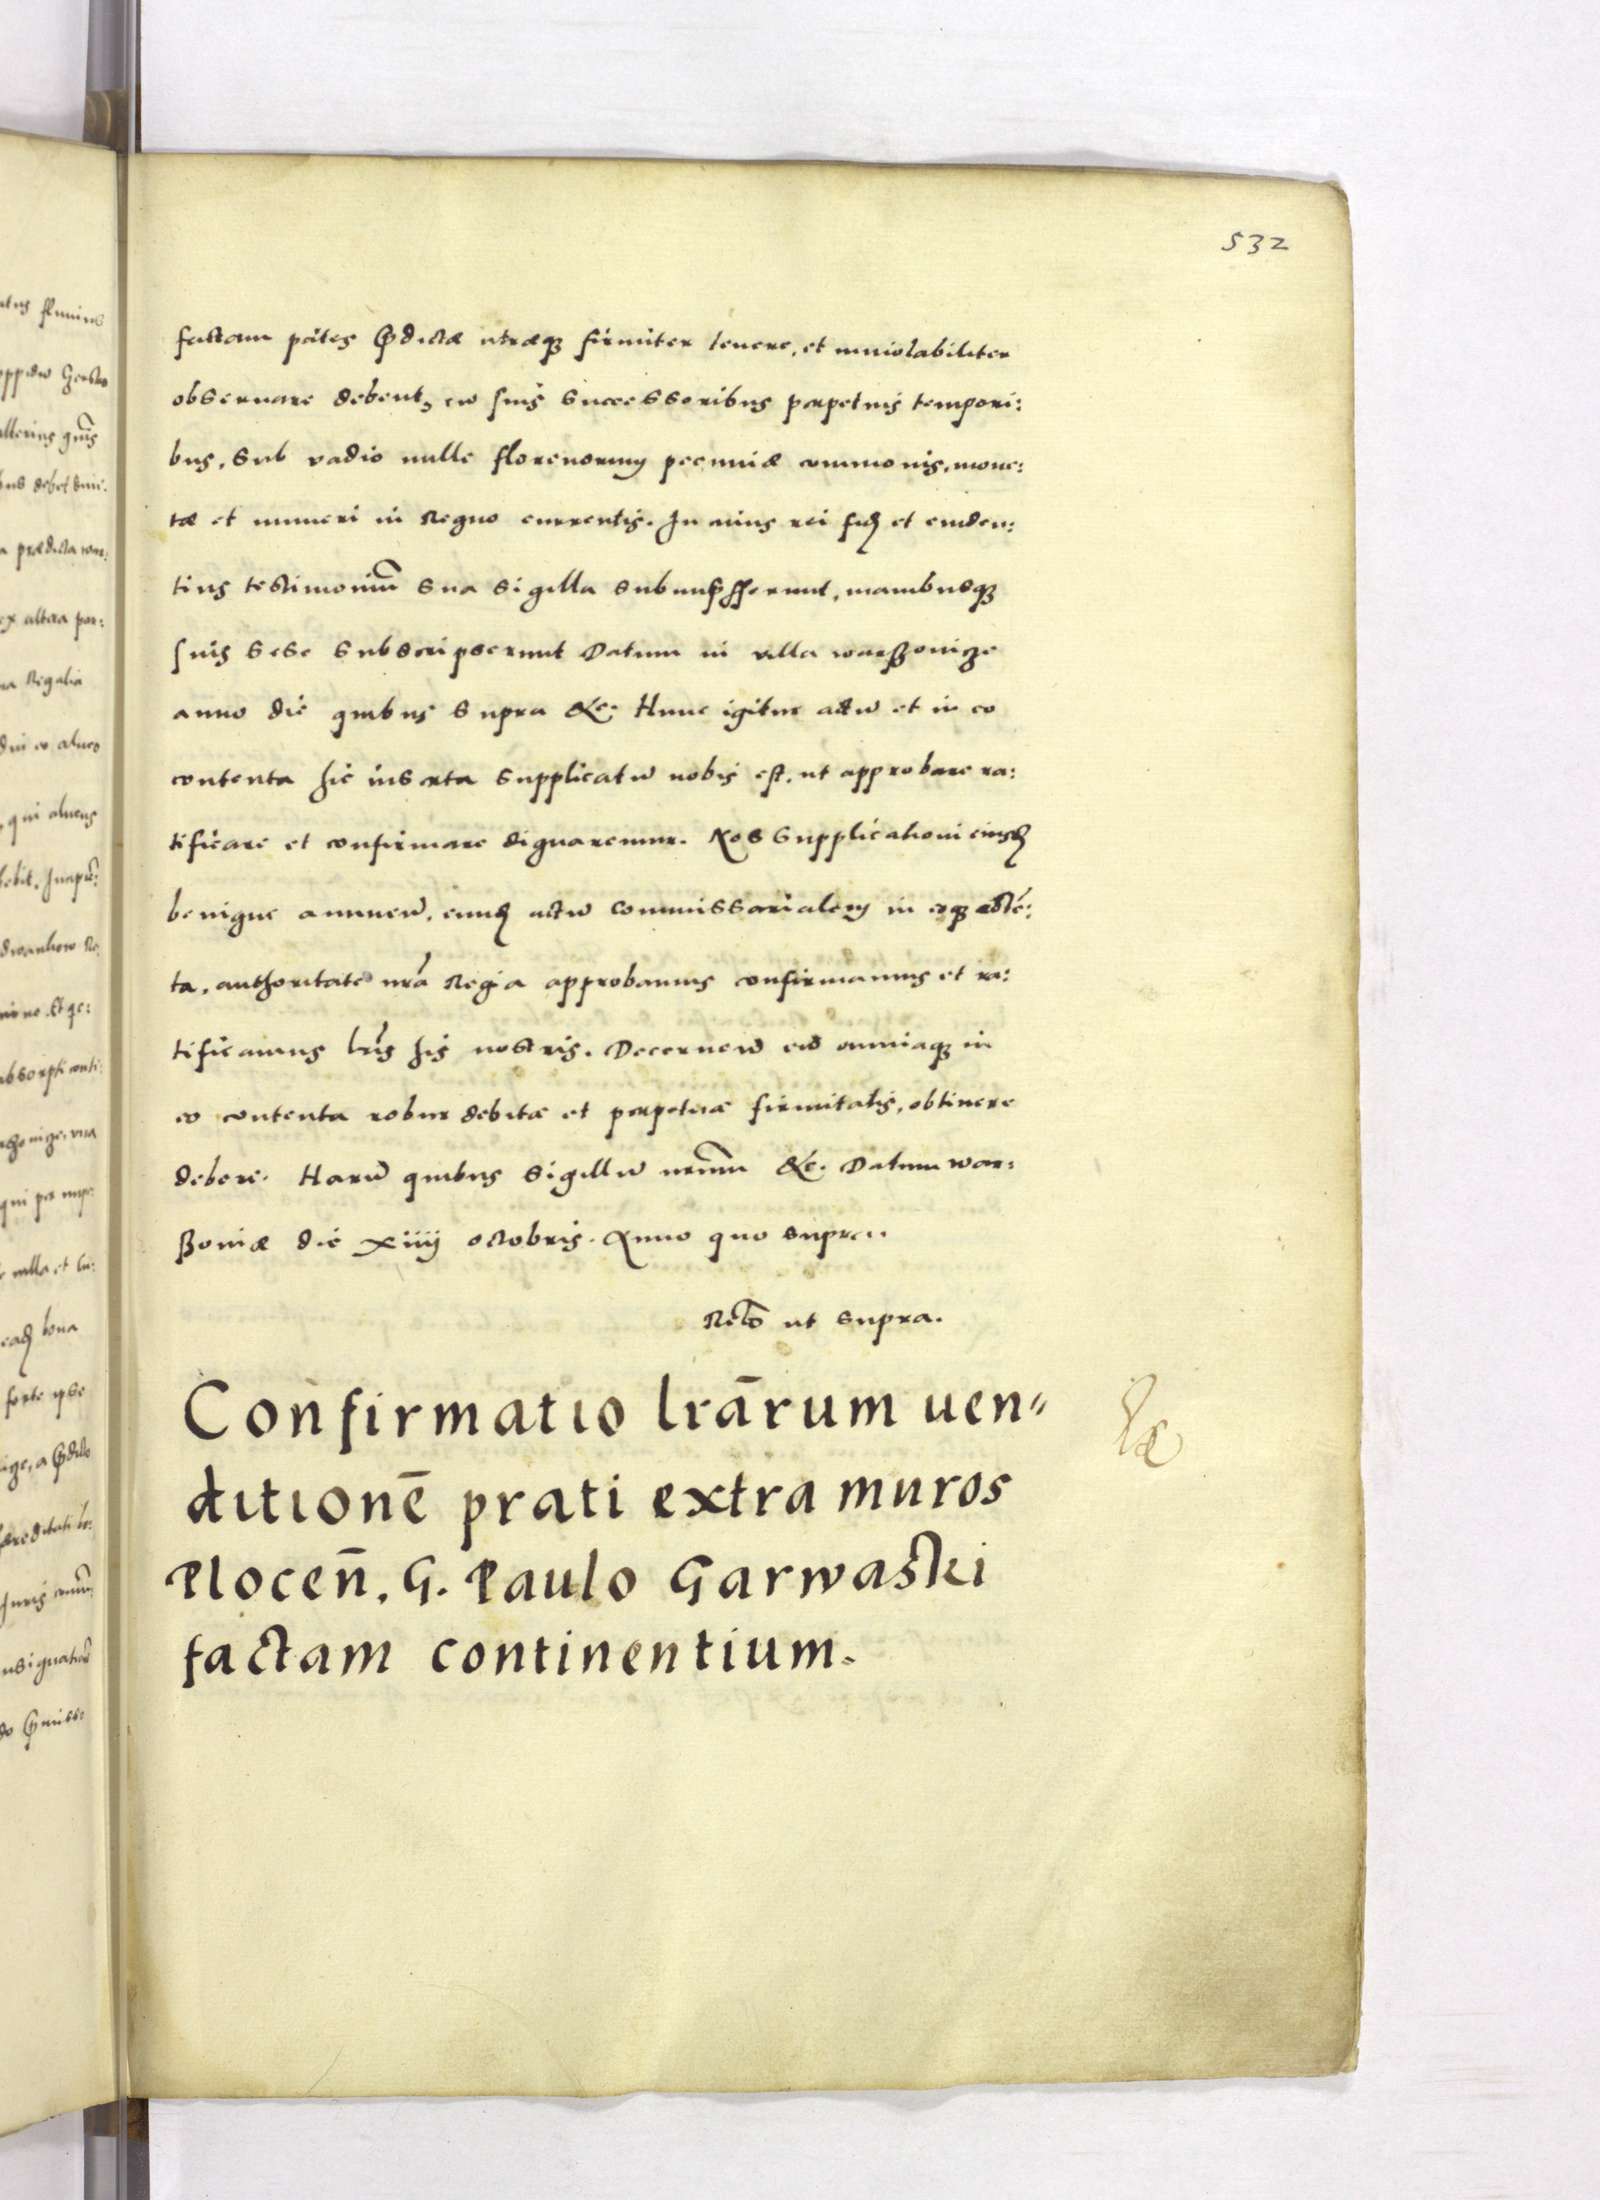 532
factam pātes p̄dictæ utræq; firmiter tenere, et inuiolabiliter
obseruare debent, cū suis successoribus perpetuis tempori:
bus, sub vadio mille florenorum pecuniæ communis, mone:
tæ et numeri in Regno currentis. In cuius rei fidē et euiden:
tius testimoniū sua sigilla subimp̄sserunt, manibusq;
suis sese subscripserunt Datum in villa warßouicze
anno die quibus supra &c. Hunc igitur actū et in eo
contenta hic inserta supplicatū nobis est, ut approbare ra:
tificare et confirmare dignaremur. Nos supplicationi eiusdē
benigne annuen̄, eundē actū commissarialem in eoq; cōtē:
ta, authoritate nrā Regia approbamus confirmamus et ra:
tificamus lrīs his nostris. Decernen̄ eū omniaq; in
eo contenta robur debitæ et perpetuæ firmitatis, obtinere
debere. Harū quibus sigillū nrūm &c. Datum war:
ßouiæ die xiiij octobris. Anno quo supra..
Relō ut supra.
Confirmatio lrārum uen„
ditionē prati extra muros
Plocen̄. G. Paulo Garwaski
factam continentium.